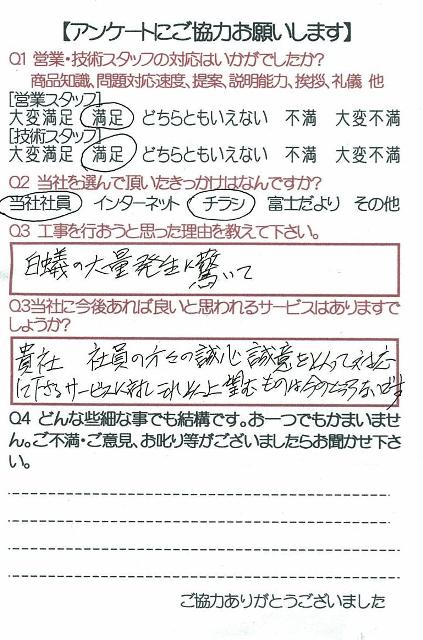 【アンケートにご協力お願いします】
Q1 営業・技術スタッフの対応はいかがでしたか?
商品知識、問題対応速度、提案、説明能力、挨拶、礼儀 他
[営業スタッフ]
大変満足 満足 どちらともいえない 不満 大変不満
[技術スタッフ]
大変満足 満足 どちらともいえない 不満 大変不満
Q2 当社を選んで頂いたきっかけはなんですか?
当社社員 インターネット チラシ 富士だより その他
Q3 工事を行おうと思った理由を教えて下さい。
白蟻の大量発生に驚いて
Q3当社に今後あれば良いと思われるサービスはありますで
しょうか?
貴社 社員の方々の誠心誠意をもって対応
に下さるサービスに対しこれ以上望むものは今のところないです
Q4 どんな些細な事でも結構です。お一つでもかまいませ
ん。ご不満・ご意見、お叱り等がございましたらお聞かせ下さ
い。
ご協力ありがとうございました